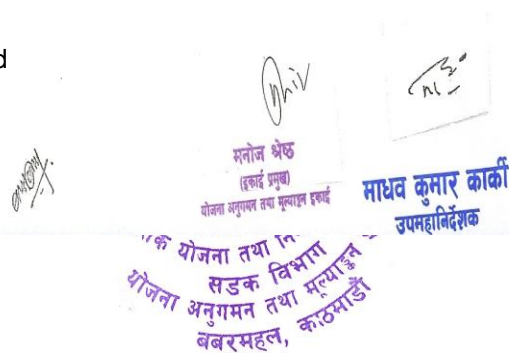 d
मनोज श्रेष्ठ
(इकाई प्रमुख)
योजना अनुगमन तथा मूल्याङ्कन इकाई
माधव कुमार कार्की
उपमहानिर्देशक
योजना तथा
सडक विभाग
योजना अनुगमन तथा मूल्याङ्कन
बबरमहल, काठमाडौं